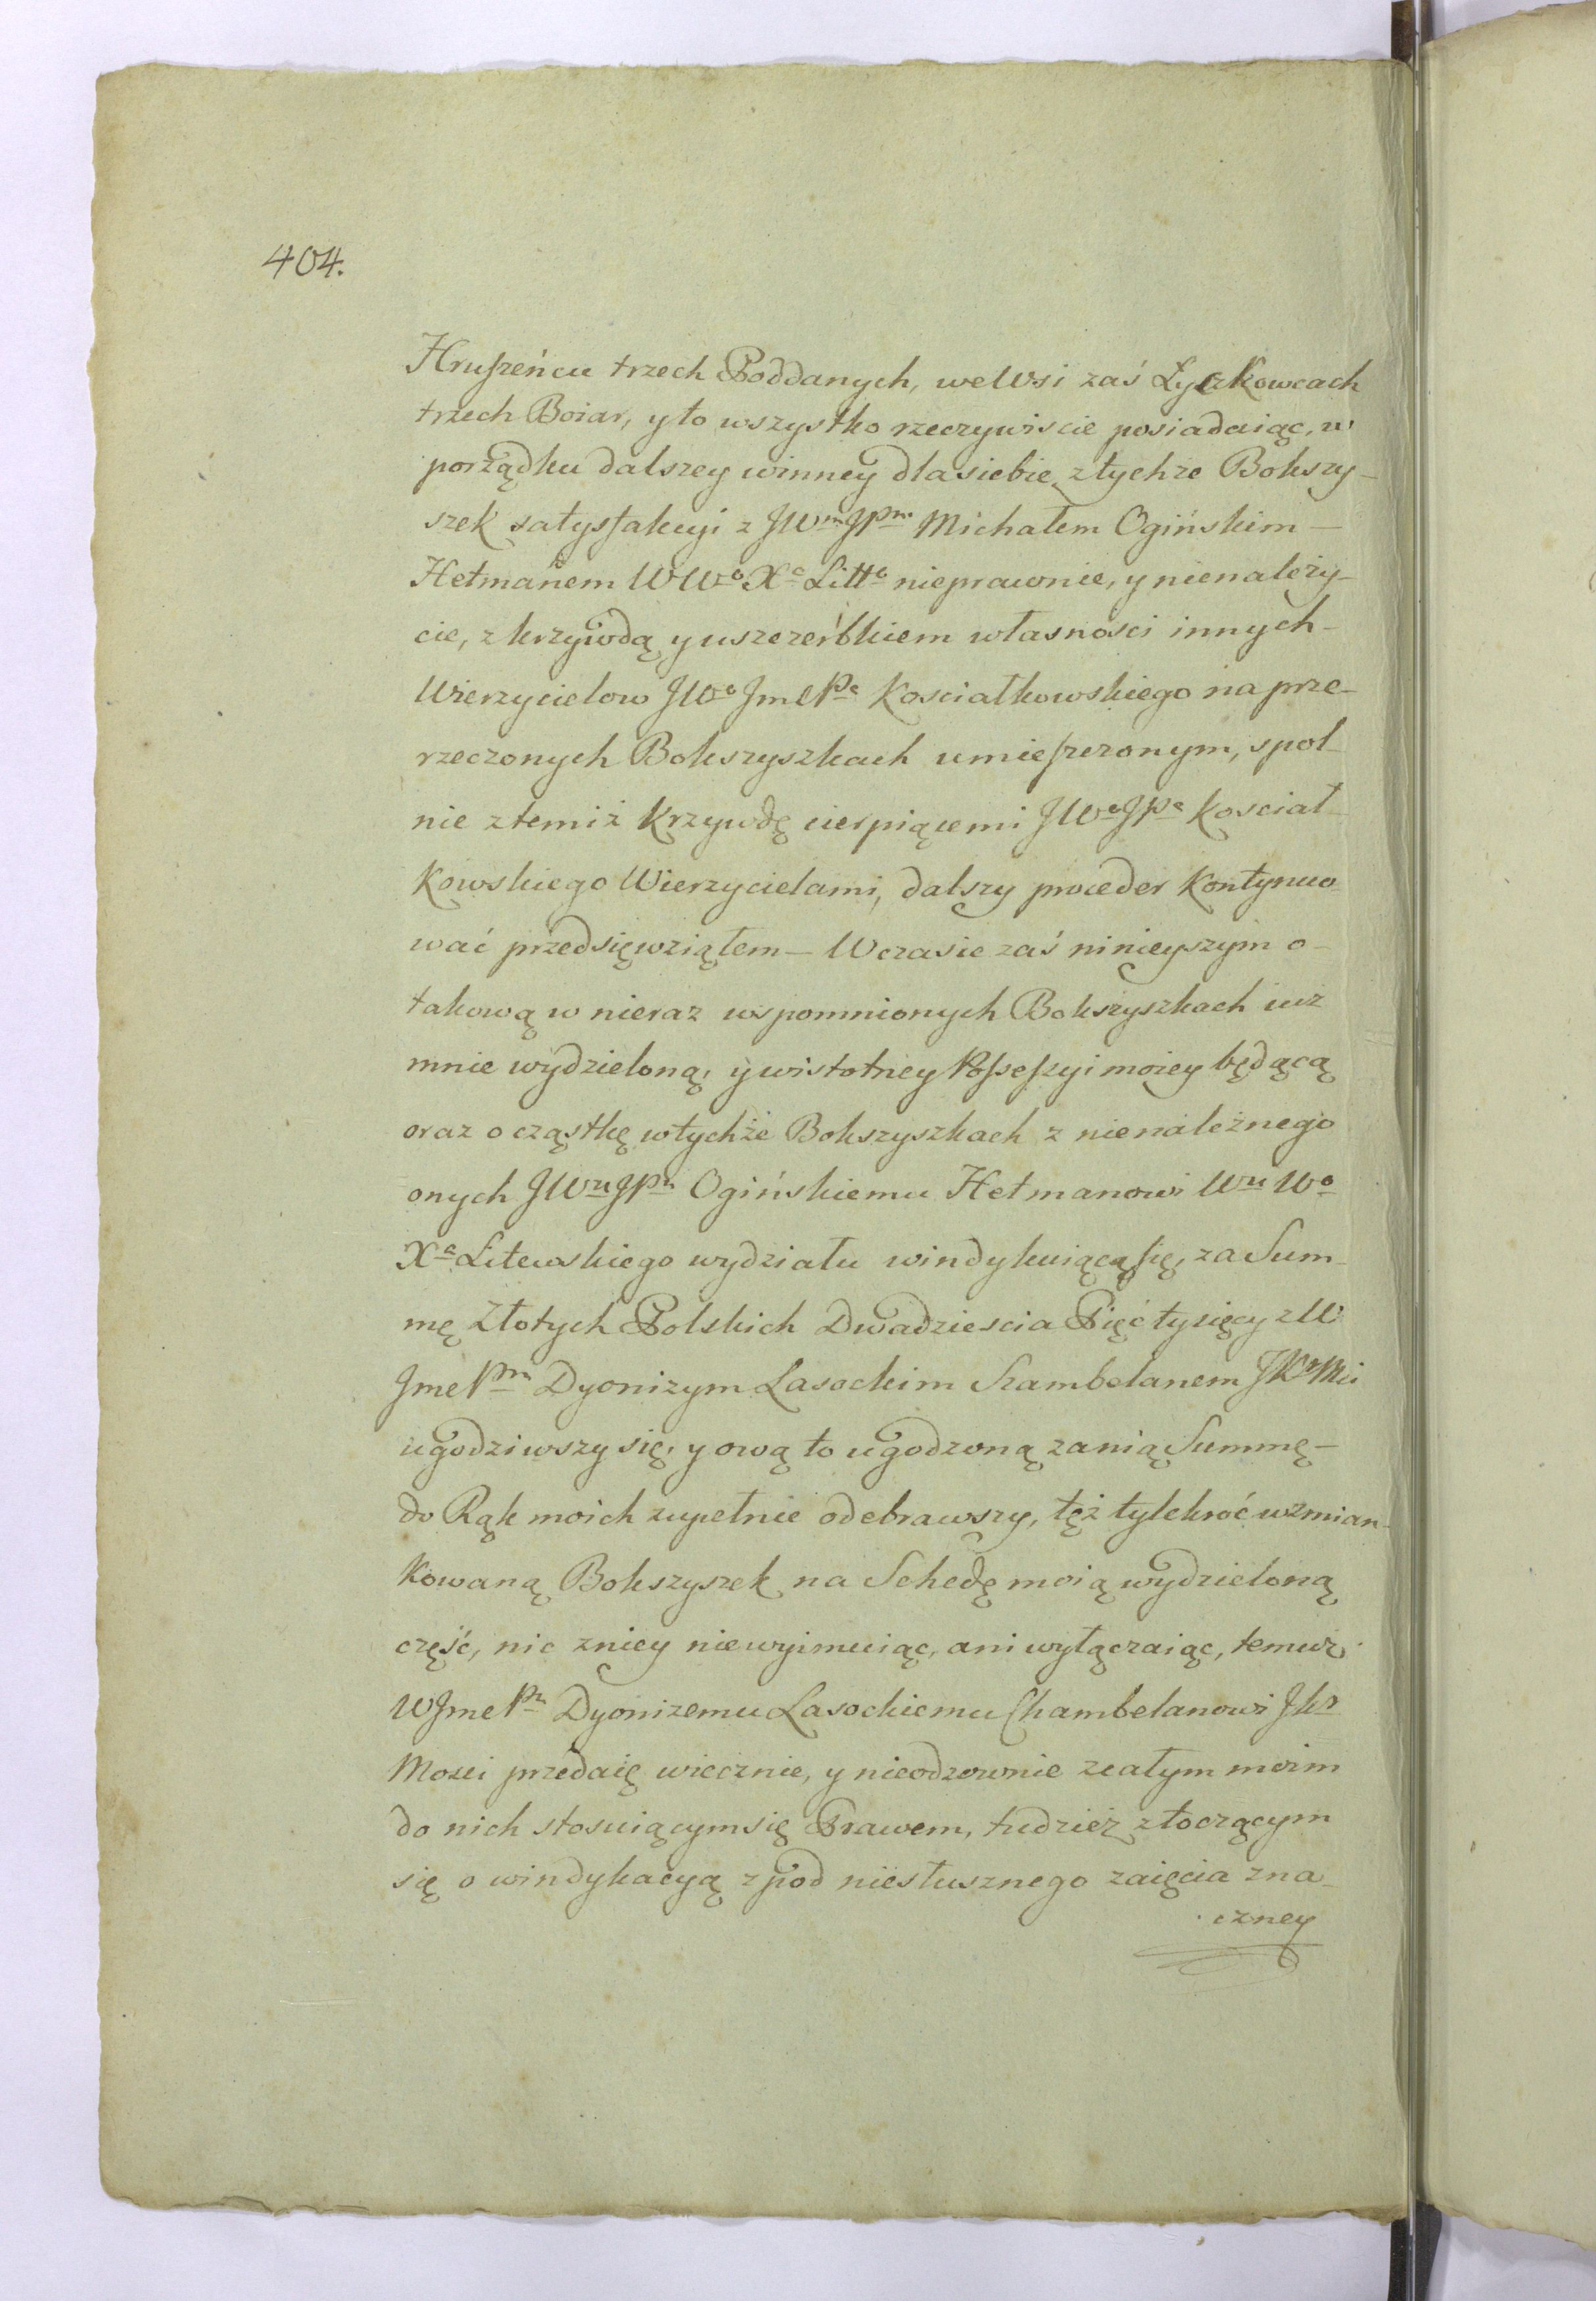 404.
Hruſzeńcu trzech Poddanych, we Wsi zaś Łyczkowcach
trzech Boiar, y to wszystko rzeczywiscie posiadaiąc, w
porządku dalszey winney dla siebie z tychże Bokszy-
szek satysfakcyi z JWm JPm Michałem Ogińskim -
Hetmanem W Wo Xa Litto nieprawnie, y nienależy-
cie, z krzywdą y uszczerbkiem własnosci innych -
Wierzycielow JWo Jme Pa Kosciałkowskiego na prze-
rzeczonych Bokszyszkach umieſzczonym, spol-
nie z temiż krzywdę cierpiącemi JWo JPa Kosciał-
kowskiego Wierzycielami, dalszy proceder kontynuo-
wać przedsięwziąłem - W czasie zaś ninieyszym o -
takową w nieraz wspomnionych Bokszyszkach iuż
mnie wydzieloną, y w istotney Poſseſsyi moiey będącą
oraz o cząstkę w tychże Bokszyszkach z nienależnego
onych JWu JPu Ogińskiemu Hetmanowi Wu Wo
Xa Litewskiego wydziału windykuiącą się, za Sum-
mę Złotych Polskich Dwadziescia Pięć tysięcy z W
Jme Pm Dyonizym Lasockim Szambelanem JKr Mci
ugodziwszy się, y ową to ugodzoną za nią Summę -
do Rąk moich zupełnie odebrawszy, też tylekroć wzmian-
kowaną Bokszyszek na Schedę moią wydzieloną
część, nic z niey nie wyimuiąc, ani wyłączaiąc, temuż
W Jme Pu Dyonizemu Lasockiemu Chambelanowi JKr
Mosci przedaię wiecznie, y nieodzownie z całym moim
do nich stosuiącym się Prawem, tudzież z toczącym
się o windykacyą z pod niesłusznego zaięcia zna-
czney